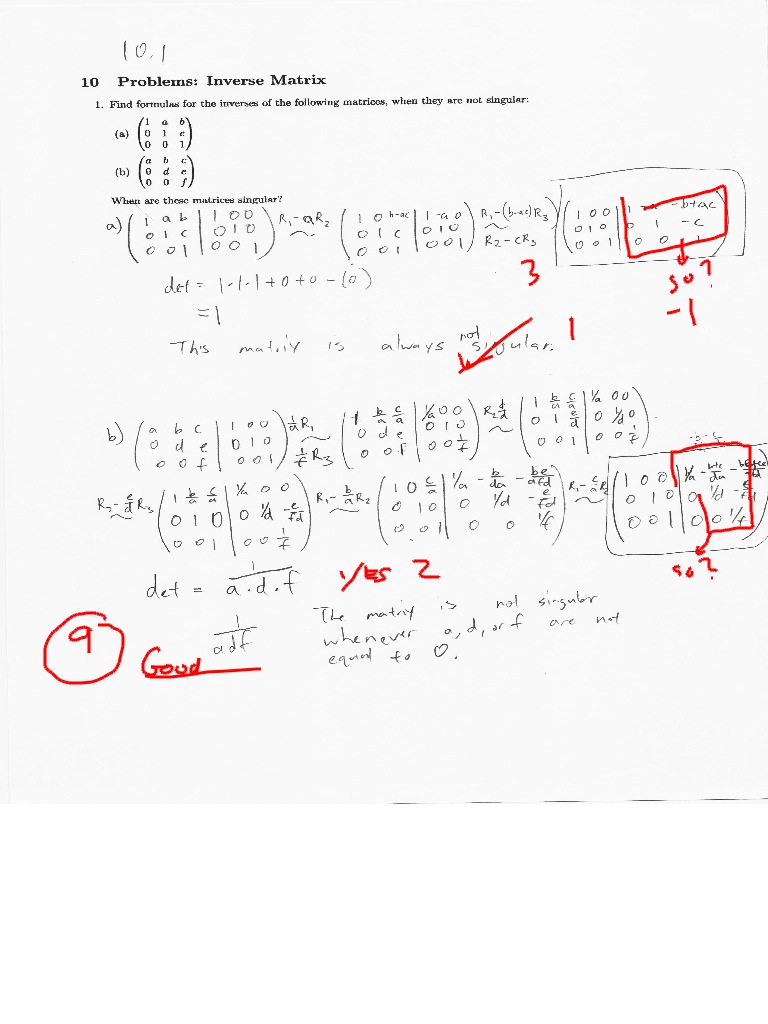 10.1
10 Problems: Inverse Matrix
1. Find formulas for the inverses of the following matrices, when they are not singular:
(a) (1 a b
0 1 c
0 0 1)
(b) (a b c
0 d e
0 0 f)
When are these matrices singular?
a) (1 a b | 1 0 0
0 1 c | 0 1 0
0 0 1 | 0 0 1) R₁-aR₂ ~
(1 0 b-ac | 1 -a 0
0 1 c | 0 1 0
0 0 1 | 0 0 1) R₁-(b-ac)R₃ ~ R₂-cR₃
(1 0 0 | 1 -a -b+ac
0 1 0 | 0 1 -c
0 0 1 | 0 0 1)
so?
-1
3
det = 1·1·1+0+0-(0)
=1
This matrix is always not singular.
1
b) (a b c | 1 0 0
0 d e | 0 1 0
0 0 f | 0 0 1) 1/a R₁ ~ 1/f R₃
(1 b/a c/a | 1/a 0 0
0 d e | 0 1 0
0 0 1 | 0 0 1/f) R₂ 1/d ~
(1 b/a c/a | 1/a 0 0
0 1 e/d | 0 1/d 0
0 0 1 | 0 0 1/f)
R₂- e/d R₃ ~
(1 b/a c/a | 1/a 0 0
0 1 0 | 0 1/d -e/fd
0 0 1 | 0 0 1/f) R₁- b/a R₂ ~
(1 0 c/a | 1/a -b/da -be/afd
0 1 0 | 0 1/d -e/fd
0 0 1 | 0 0 1/f) R₁- c/a R
(1 0 0 | 1/a
0 1 0 | 0 1/d
0 0 1 | 0 0 1/f)
so?
det = a·d·f
YES 2
1/adf
The matrix is not singular
whenever a, d, or f are not
equal to 0.
9
Good